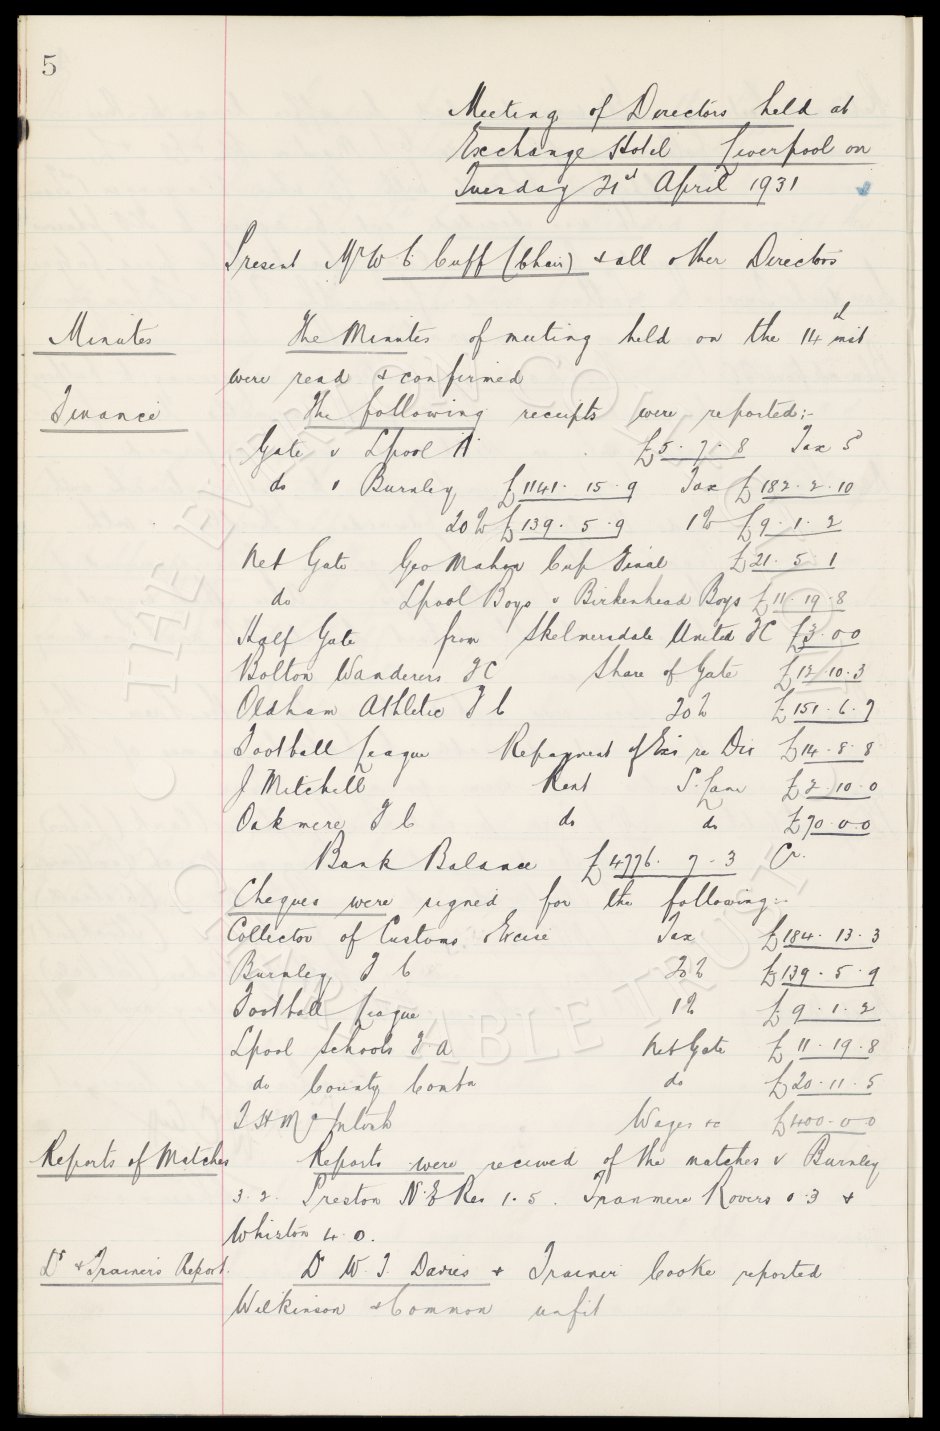 5
Meeting of Directors held at
Exchange Hotel Liverpool on
Tuesday 21st April 1931
Present Mr W C Cuff (Chair) & all other Directors
Minutes The Minutes of meeting held on the 14th inst
were read & confirmed
Finance The following receipts were reported:-
Gate v Lpool A £5.7.8 Tax
do v Burnley £1141.15.9 Tax £182.2.10
20% £139.5.9 1% £9.1.2
Net Gate Geo Mahon Cup Final £21.5.1
do Lpool Boys v Birkenhead Boys £11.19.8
Half Gate from Skelmersdale United FC £3.0.0
Bolton Wanderers FC Share of Gate £12.10.3
Oldham Athletic F C 20% £151.6.7
Football League Repayment of Exs re Dis £14.8.8
J Mitchell Rent G. Lane £2.10.0
Oakmere F C do do £70.0.0
Bank Balance £4776.7.3 Cr.
Cheques were signed for the following:-
Collector of Customs Excise Tax £184.13.3
Burnley F C 20% £139.5.9
Football League 1% £9.1.2
Lpool Schools F.A Net Gate £11.19.8
do County Combn do £20.11.5
T H McIntosh Wages &c £400.0.0
Reports of Matches Reports were received of the matches v Burnley
3.2. Preston N.E Res 1.5. Tranmere Rovers 0.3 &
Whiston 4.0.
Dr & Trainers Report. Dr W. J. Davies & Trainer Cooke reported
Wilkinson & Common unfit
THE EVERTON CO
CHARITABLE TRUST